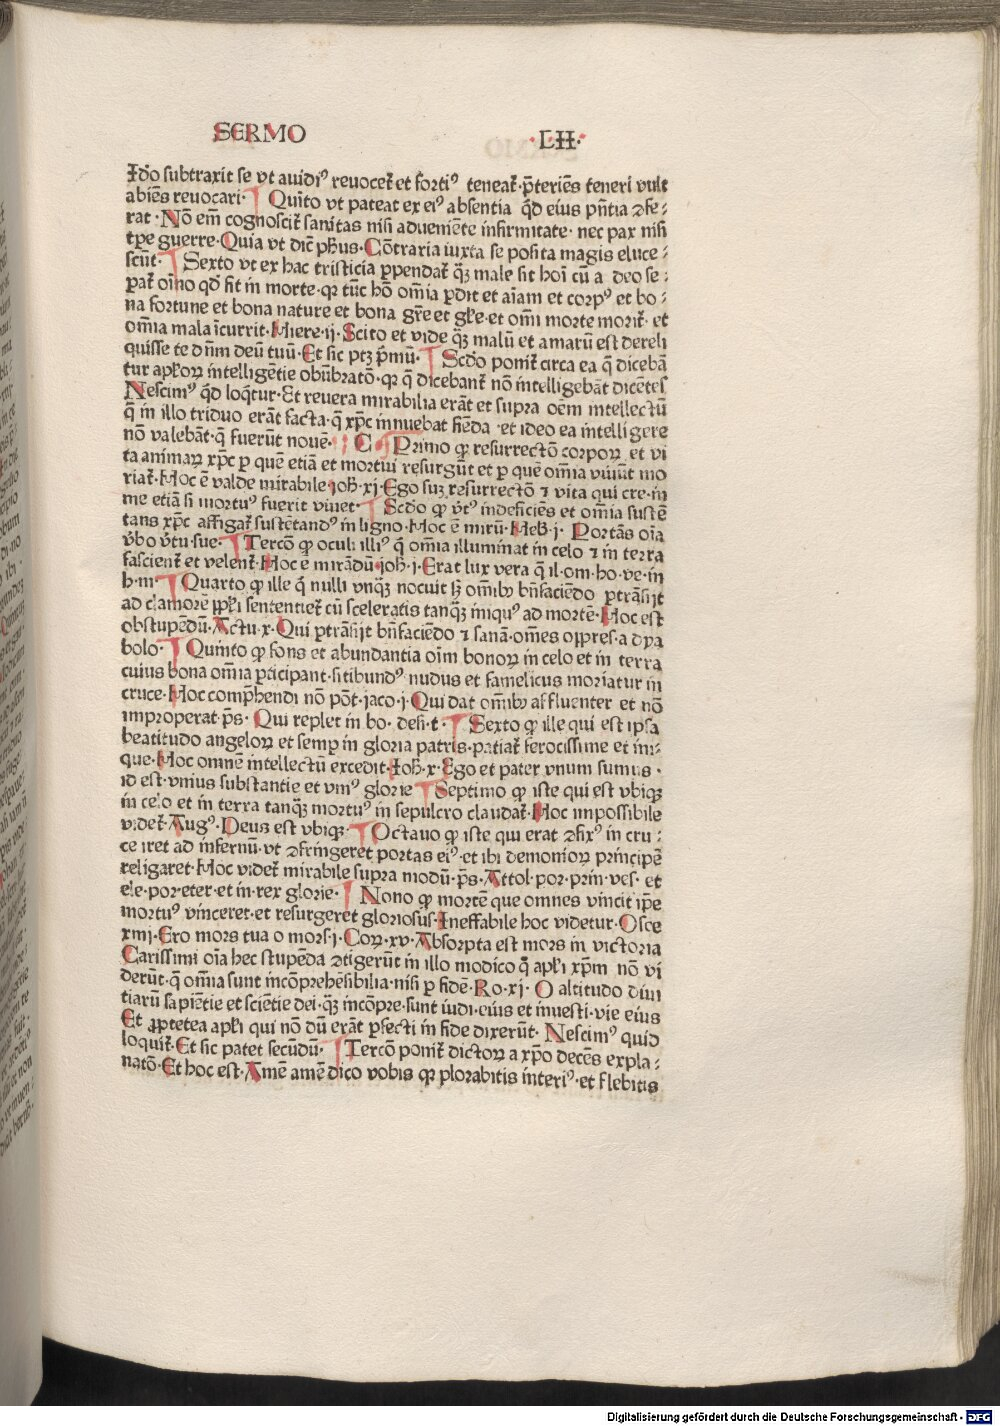 SERMO ·LII·
Idēo subtraxit se vt auidiꝰ reuocet᷑ et fortiꝰ teneat᷑ p̄teriēs teneri vult
abiēs reuocari· Quīto vt pateat ex eiꝰ absentia qđ eius pn̄tia ꝯfe⸗
rat· Nō em̄ cognoscit᷑ sanitas nisi adueniēte infirmitate· nec pax nisi
tp̄e guerre· Quia vt dic̄ ph̄us· Cōtraria iuxta se posita magis eluce⸗
scūt· Sexto vt ex hac tristicia ꝑpendat᷑ qꝫ male sit hoī cū a deo se⸗
ꝑat᷑ oīno qđ fit in morte· qꝛ tūc hō om̄ia ꝑdit et aīam et corpꝰ et bo⸗
na fortune et bona nature et bona gr̄e et gl̄e· et om̄i morte morit᷑· et
om̄ia mala īcurrit· Hiere·ij· Scito et vide qꝫ malū et amarū est dereli
quisse te dn̄m deū tuū· Et sic ptꝫ p̄mū· Scd̄o ponit᷑ circa ea q̄ dicebā
tur apl̄oꝝ intelligētie obūbratō· qꝛ q̄ dicebant᷑ nō intelligebāt dicētes
Nescimꝰ qđ loqt᷑ur· Et reuera mirabilia erāt et supra oēm intellectū
q̄ in illo triduo erāt facta· q̄ xp̄c innuebat fiēda· et ideo ea intelligere
nō valebāt· q̄ fuerūt nouē· C Primo ꝙ resurrectō corpoꝝ et vi
ta animaꝝ xp̄c ꝑ quē etiā et mortui resurgūt et ꝑ quē om̄ia viuūt mo
riat᷑· Hoc ē valde mirabile· ioh̄·xj· Ego suꝫ resurrectō ⁊ vita qui cre·in
me etiā si mortuꝰ fuerit viuet· Scd̄o ꝙ v̄tꝰ indeficiēs et om̄ia sustē
tans xp̄c affigat᷑ sustētandꝰ in ligno· Hoc ē mirū· Heb̄·j· Portās oīa
v̄bo v̄tu·sue· Tercō ꝙ oculi illiꝰ q̄ om̄ia illuminat in celo ⁊ in terra
fascient᷑ et velent᷑· Hoc ē mirādū· ioh̄·j· Erat lux vera q̄ il·om·ho·ve·in
h·m· Quarto ꝙ ille q̄ nulli vnqꝫ nocuit sꝫ om̄ibꝰ bn̄faciēdo ꝑtrāsijt
ad clamorē ipl̄i sententiet᷑ cū sceleratis tanqꝫ iniquꝰ ad mortē· Hoc est
obstupēdū· Actu·x· Qui ꝑtrāsijt bn̄faciēdo ⁊ sanā·om̄es oppres·a dya
bolo· Quīto ꝙ fons et abundantia oīm bonoꝝ in celo et in terra
cuius bona om̄ia ꝑticipant· sitibundꝰ nudus et famelicus moriatur in
cruce· Hoc comp̄hendi nō pōt· iaco·j· Qui dat om̄ibꝰ affluenter et nō
improperat· p̄s· Qui replet in bo· desi·t· Sexto ꝙ ille qui est ipsa
beatitudo angeloꝝ et semꝑ in gloria patris· patiat᷑ ferocissime et ini⸗
que· Hoc omnē intellectū excedit· Ioh̄·x· Ego et pater vnum sumus·
id est· vnius substantie et vniꝰ glorie Septimo ꝙ iste qui est vbiqꝫ
in celo et in terra tanqꝫ mortuꝰ in sepulcro claudat᷑· Hoc impossibile
videt᷑· Augꝰ· Deus est vbiqꝫ· Octauo ꝙ iste qui erat ꝯfixꝰ in cru⸗
ce iret ad infernū· vt ꝯfringeret portas eiꝰ· et ibi demonioꝝ principē
religaret· Hoc videt᷑ mirabile supra modū· p̄s· Attol·por·prin·ves· et
ele·por·eter·et in·rex glorie· Nono ꝙ mortē que omnes vincit ip̄e
mortuꝰ vinceret· et resurgeret gloriosus· Ineffabile hoc videtur· Osee
xiij· Ero mors tua o mors·j· Coꝝ·xv· Absorpta est mors in victoria
Carissimi oīa hec stupēda ꝯtigerūt in illo modico q̄ apl̄i xp̄m nō vi
derūt· q̄ om̄ia sunt incōprehēsibilia· nisi ꝑ fidē· Ro·xj· O altitudo diui
tiarū sapiētie et sciētie dei· qꝫ incōpre·sunt iudi·eius et inuesti·vie eius
Et ꝓptetea apl̄i qui nō dū erāt ꝑfecti in fide dixerūt· Nescimꝰ quid
loquit᷑· Et sic patet secūdū· Tercō ponit᷑ dictoꝝ a xp̄o decēs expla⸗
natō· Et hoc est· Amē amē dico vobis qꝛ plorabitis interiꝰ· et flebitis
Digitalisierung gefördert durch die Deutsche Forschungsgemeinschaft - DFG